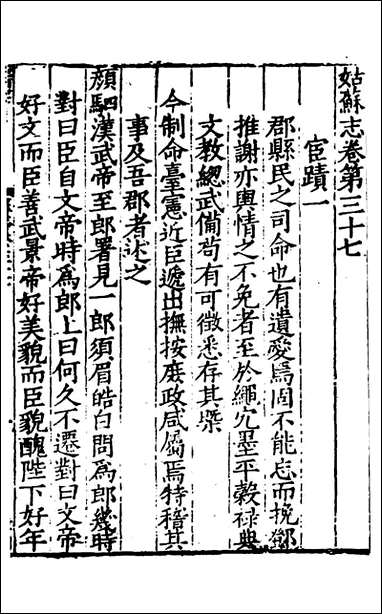 姑蘇志卷第三十七
宦蹟一
郡縣民之司命也有遺愛焉固不能忘而挽鄧
推謝亦輿情之不免者至於繩宂墨平穀祿典
文教總武備苟有可徵悉存其槩
今制命臺憲近臣遞出撫按庶政咸屬焉特稽其
事及吾郡者述之
顏駟漢武帝至郎署見一郎須眉皓白問爲郎幾時
對曰臣自文帝時爲郎上曰何久不遷對曰文帝
好文而臣善武景帝好美貌而臣貌醜陛下好年